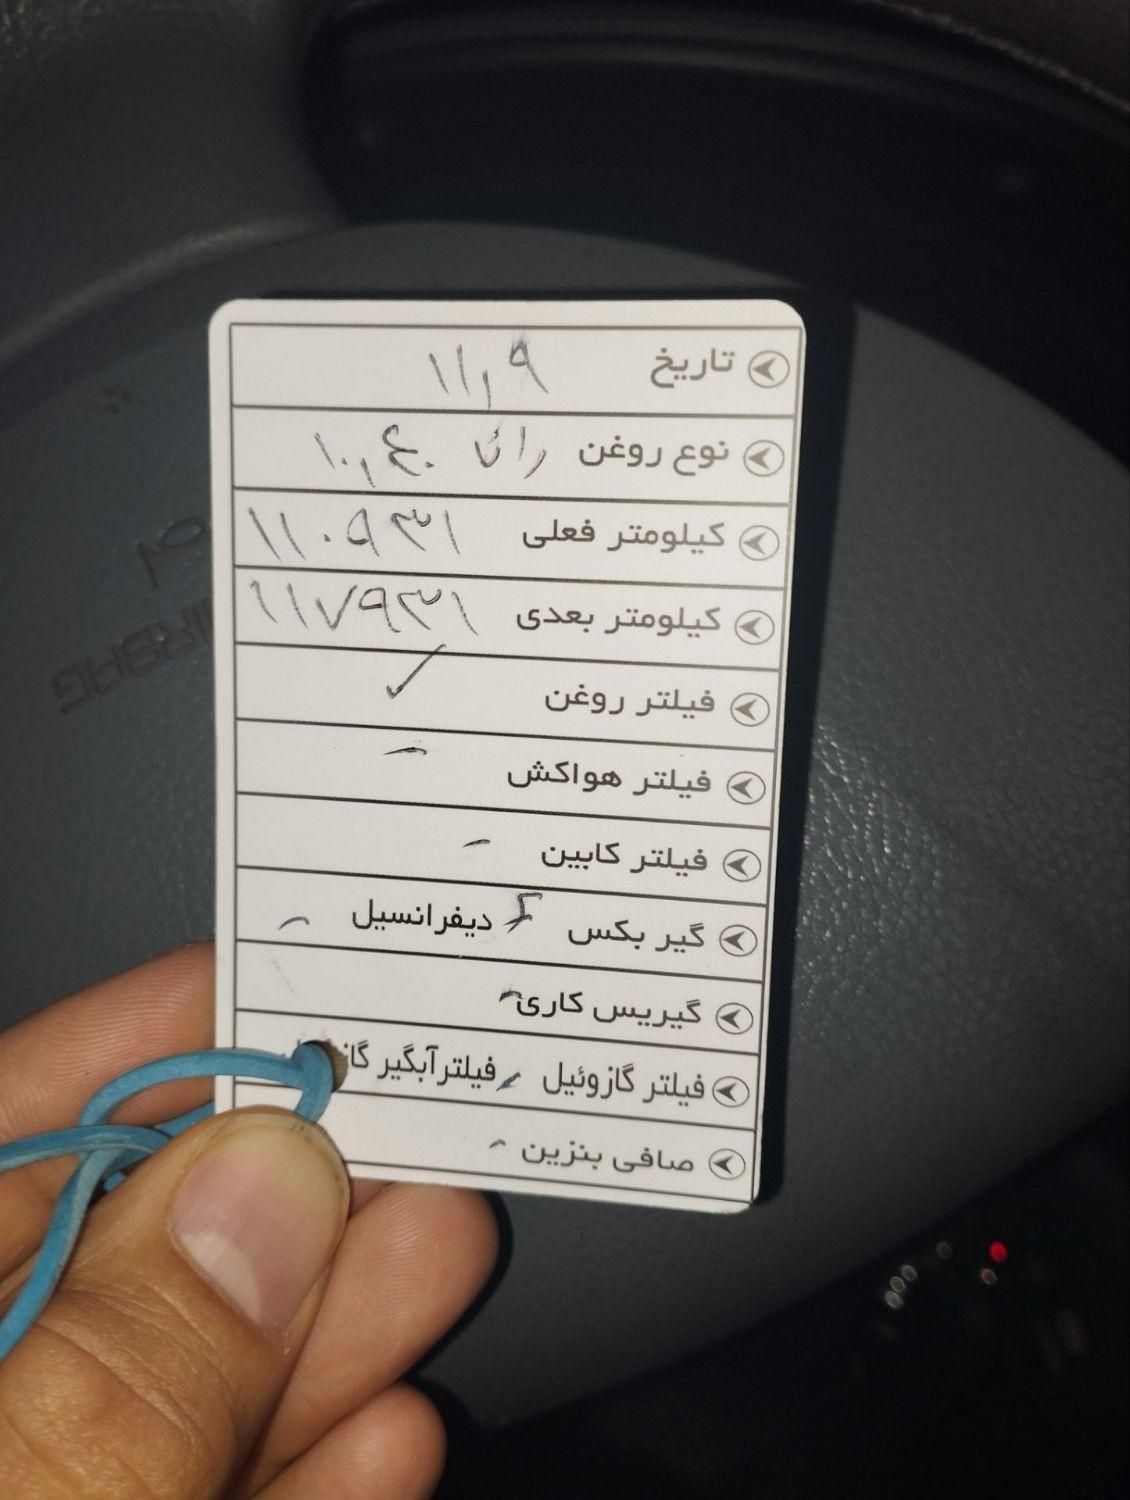 تاریخ ۱۱,۹
نوع روغن ۱۰,۴۰
کیلومتر فعلی ۱۱۰۹۳۱
کیلومتر بعدی ۱۱۷۹۳۱
فیلتر روغن ✓
فیلتر هواکش -
فیلتر کابین -
گیر بکس دیفرانسیل -
گیریس کاری -
فیلتر گازوئیل - فیلترآبگیر
صافی بنزین -
AIRBAG